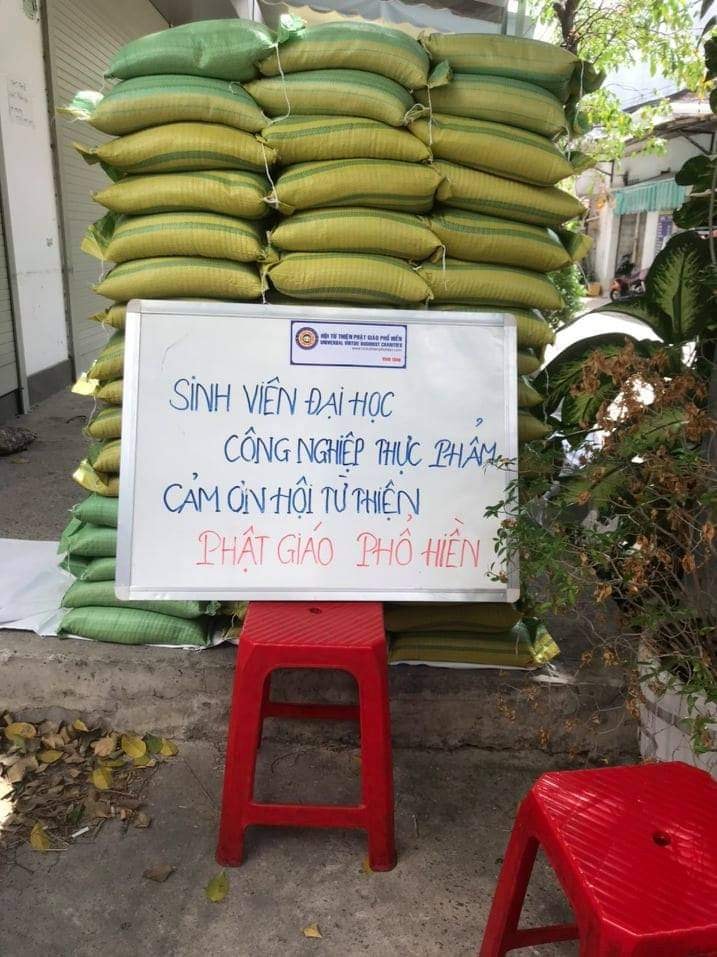 HỘI TỪ THIỆN PHẬT GIÁO PHỔ HIỀN
UNIVERSAL VIRTUE BUDDHIST CHARITIES
SINH VIÊN ĐẠI HỌC
CÔNG NGHIỆP THỰC PHẨM
CẢM ƠN HỘI TỪ THIỆN
PHẬT GIÁO PHỔ HIỀN